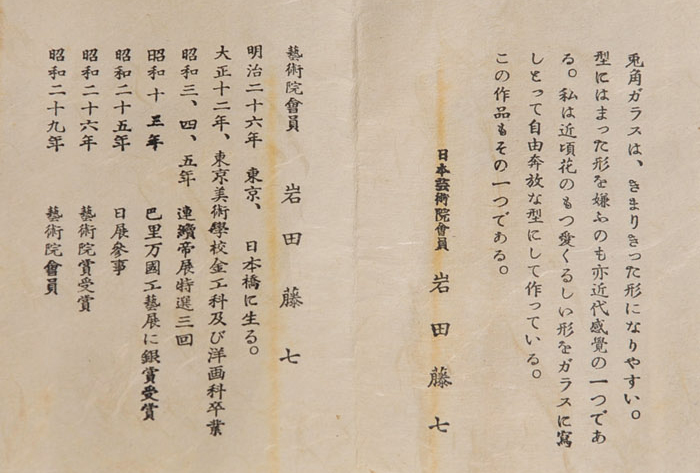 兎角ガラスは、きまりきった形になりやすい。
型にはまった形を嫌ふのも亦近代感覺の一つであ
る。私は近頃花のもつ愛くるしい形をガラスに寫
しとって自由奔放な型にして作っている。
この作品もその一つである。
日本藝術院會員 岩田藤七
藝術院會員 岩田藤七
明治二十六年 東京、日本橋に生る。
大正十二年、東京美術學校金工科及び洋画科卒業
昭和三、四、五年 連續帝展特選三回
昭和十三年 巴里万國工藝展に銀賞受賞
昭和二十五年 日展參事
昭和二十六年 藝術院賞受賞
昭和二十九年 藝術院會員